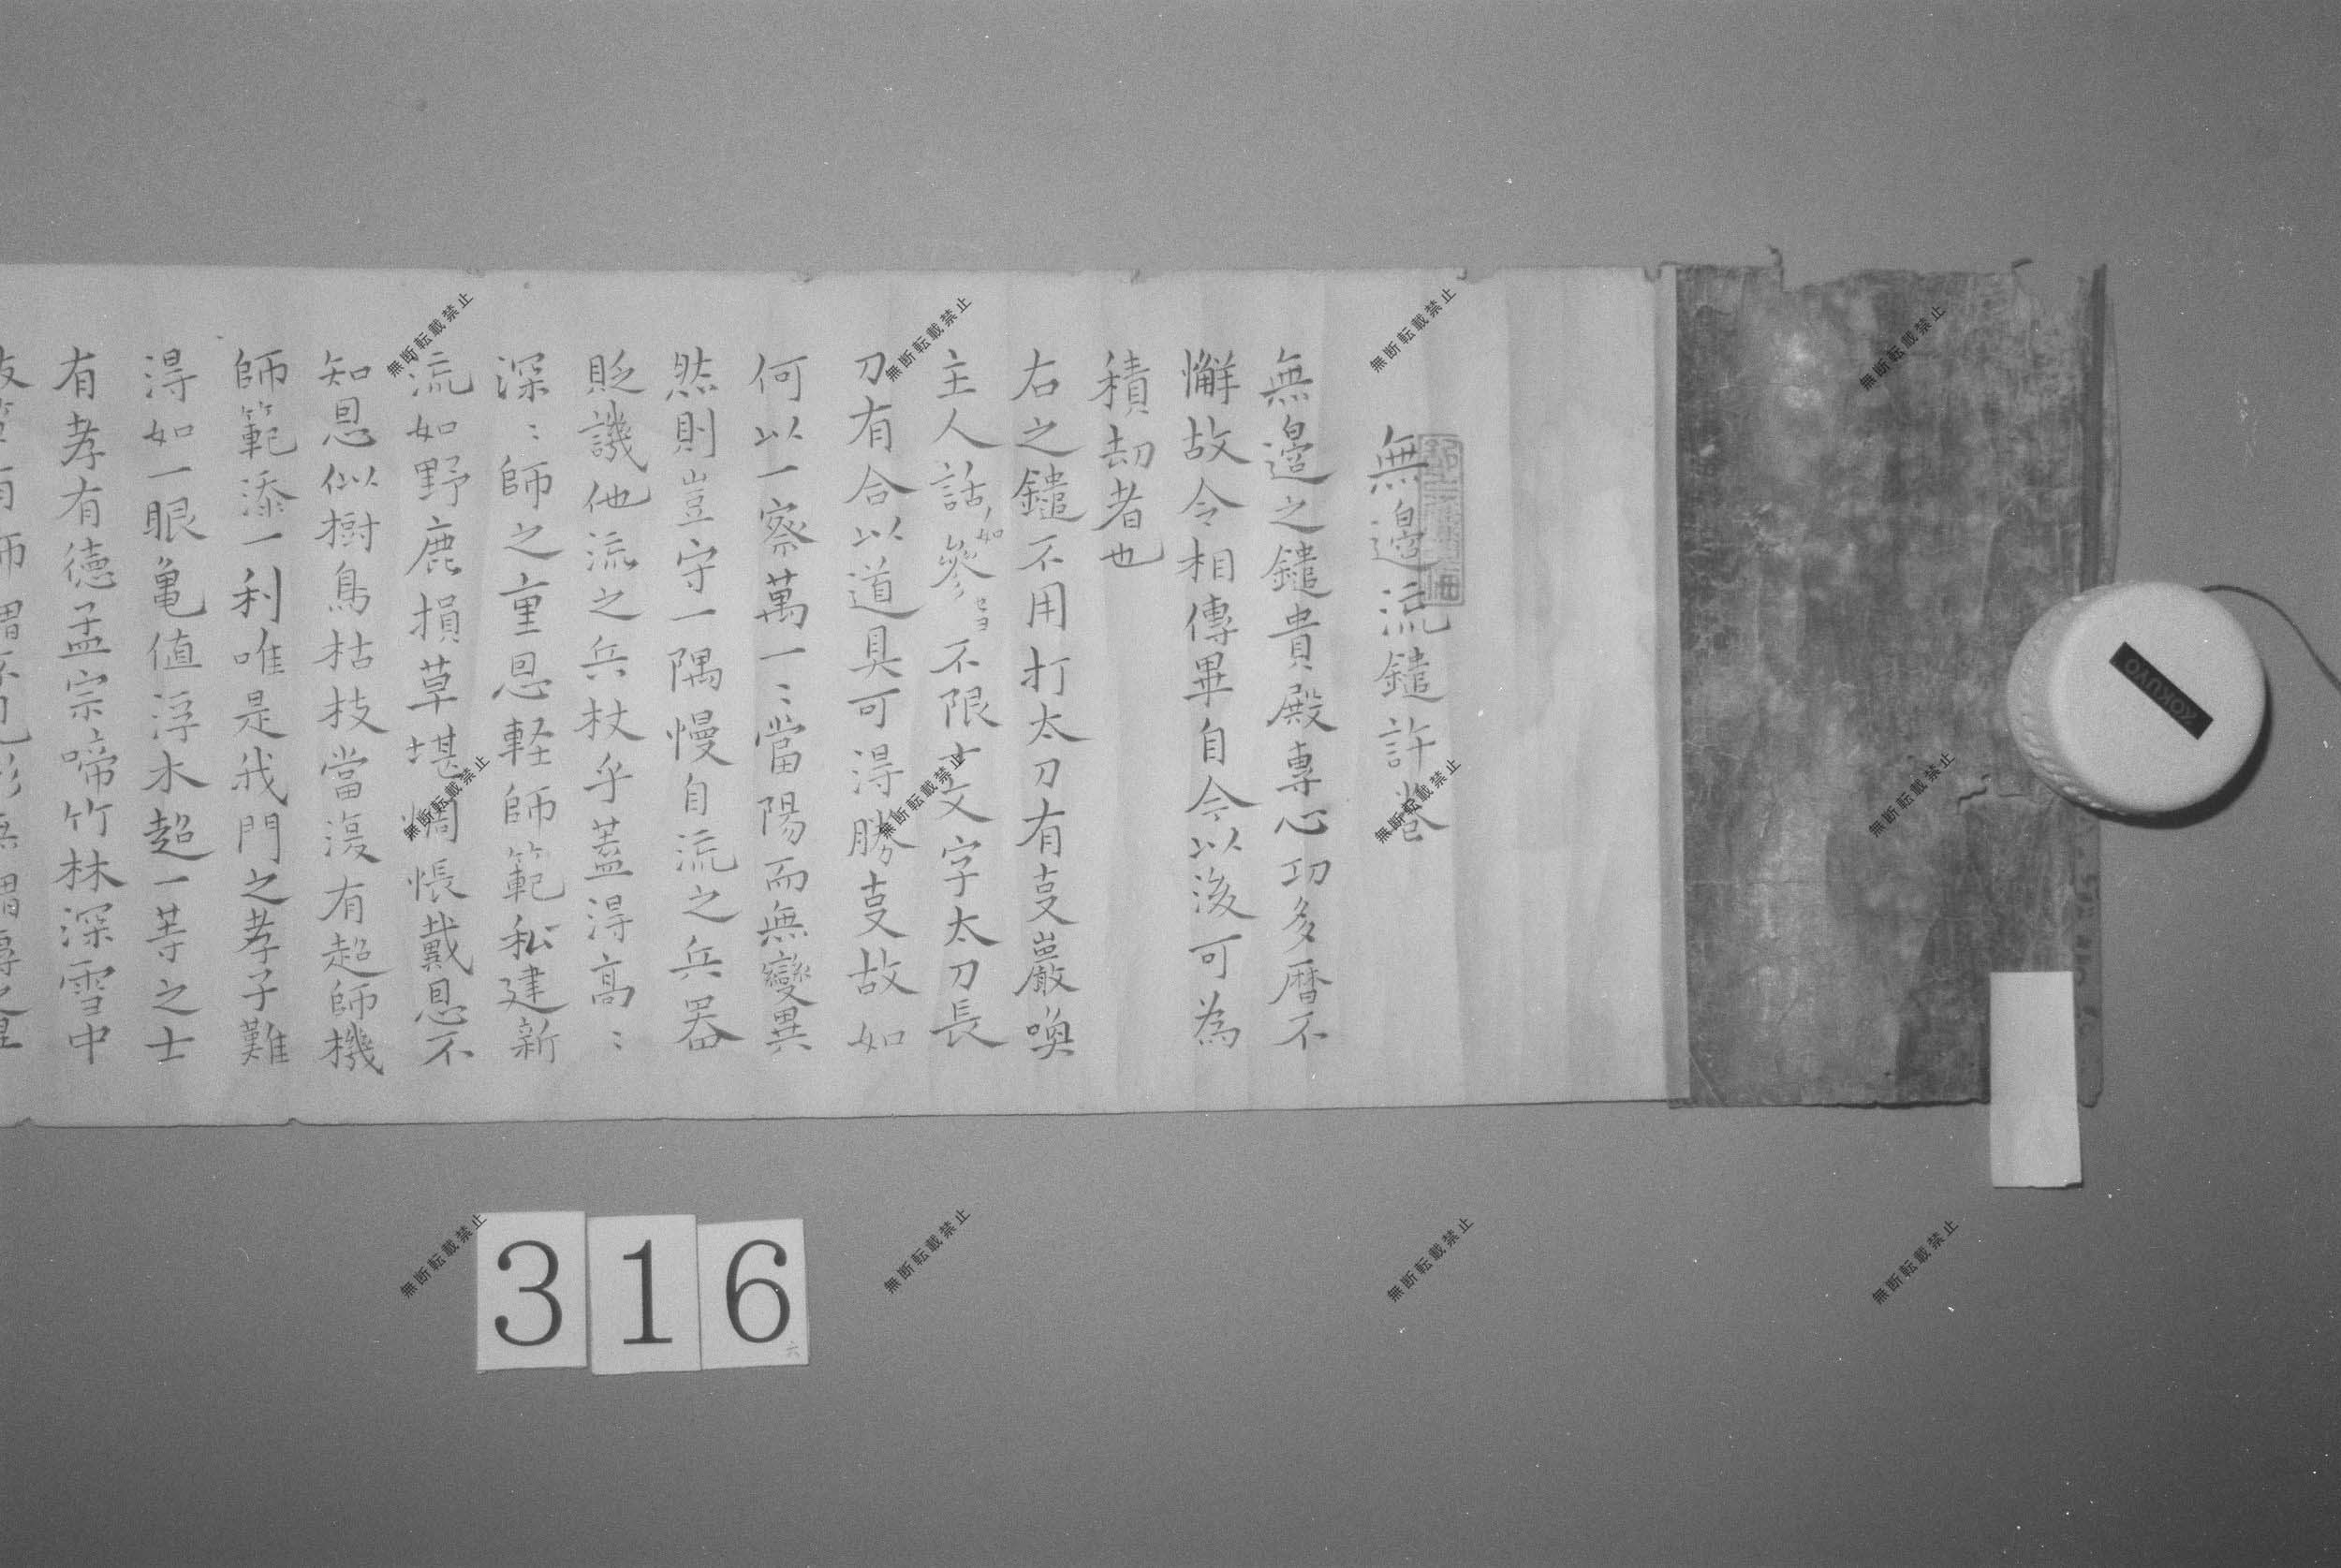 無邊流鑓許巻
無邊之鑓貴殿專心功多暦不
懈故令相傳畢自今以後可為
積劫者也
右之鑓不用打太刀有叓嚴喚
主人話參不限文字太刀長
刀有合以道具可得勝叓故如
何以一察萬一〻當陽而無變異
然則豈守一隅慢自流之兵器
貶譏他流之兵杖乎蓋得髙〻
深〻師之重恩軽師範私建新
流如野鹿損草堪惆悵戴恩不
知恩似樹鳥枯枝當復有超師機
師範添一利唯是我門之孝子難
得如一眼亀値浮木超一等之士
有孝有德孟宗啼竹林深雪中
316
六
KOKUYO
無断転載禁止
無断転載禁止
無断転載禁止
無断転載禁止
無断転載禁止
無断転載禁止
無断転載禁止
無断転載禁止
無断転載禁止
無断転載禁止
無断転載禁止
無断転載禁止